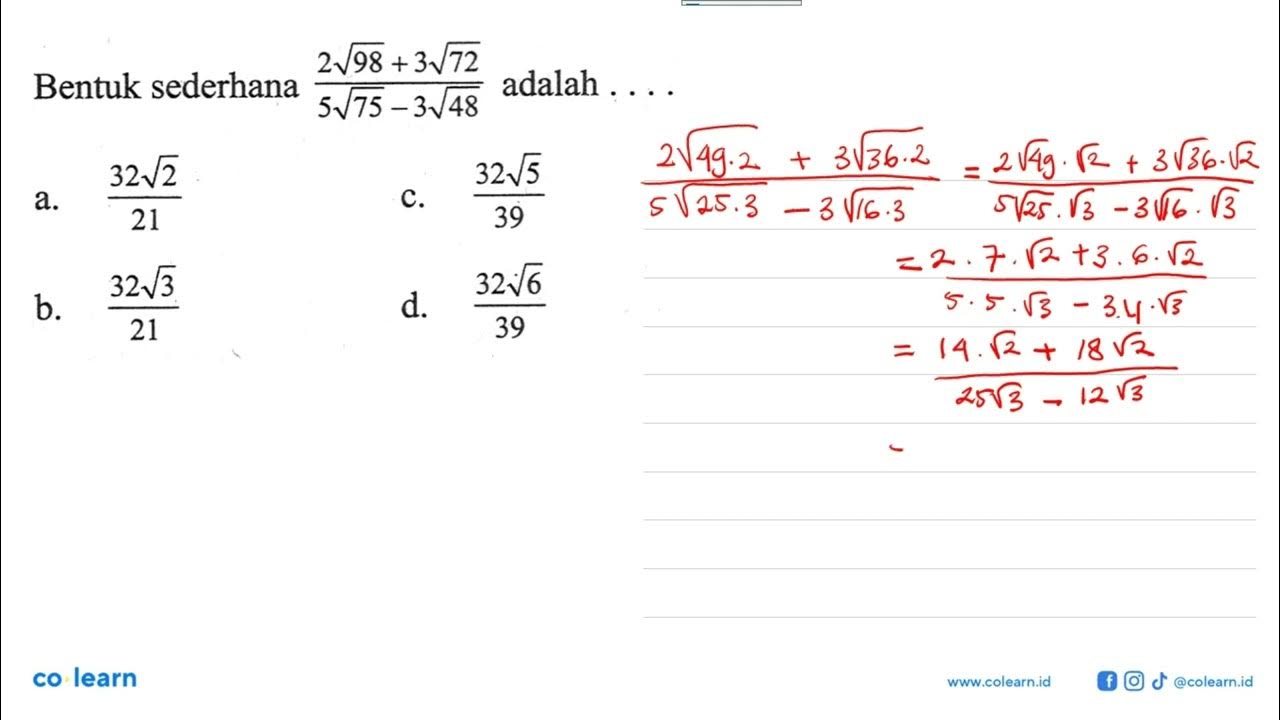 Bentuk sederhana (2√98 + 3√72)/(5√75 − 3√48) adalah . . . .
a. 32√2/21
c. 32√5/39
b. 32√3/21
d. 32√6/39
(2√49·2 + 3√36·2)/(5√25·3 − 3√16·3) = (2√49·√2 + 3√36·√2)/(5√25·√3 − 3√16·√3)
= (2·7·√2 + 3·6·√2)/(5·5·√3 − 3.4·√3)
= (14·√2 + 18√2)/(25√3 − 12√3)
co learn
www.colearn.id
@colearn.id